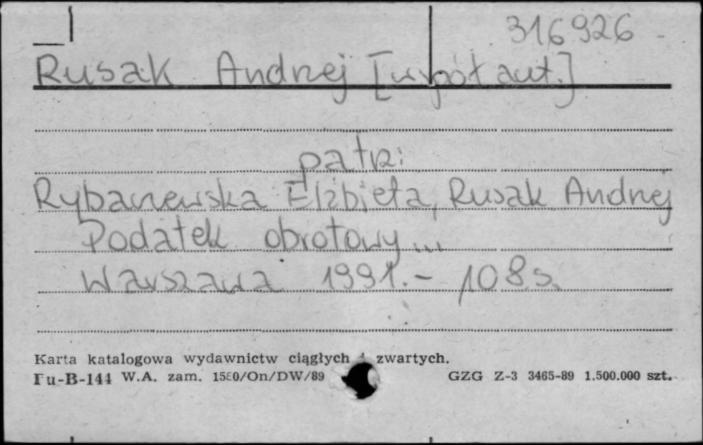 316926
Rusak Andrzej [współaut.]
patrz:
Rybaczewska Elżbieta, Rusak Andrzej
Podatek obrotowy...
Warszawa 1991.- 108 s.
Karta katalogowa wydawnictw ciągłych i zwartych.
Pu-B-144 W.A. zam. 1580/On/DW/89 GZG Z-3 3465-89 1.500.000 szt.